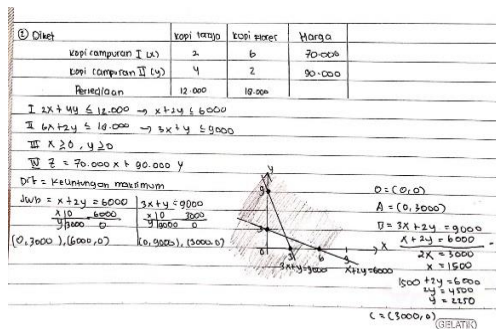 ② Diket
kopi toraja kopi Flores Harga
kopi campuran I (x) 2 6 70.000
kopi campuran II (y) 4 2 90.000
Persediaan 12.000 18.000
I 2x + 4y ≤ 12.000 → x + 2y ≤ 6000
II 6x + 2y ≤ 18.000 → 3x + y ≤ 9000
III x ≥ 0, y ≥ 0
IV Z = 70.000 x + 90.000 y
Dit = keuntungan maksimum
Jwb = x + 2y = 6000 3x + y = 9000
x 0 6000
y 3000 0
x 0 3000
y 9000 0
(0, 3000), (6000, 0) (0, 9000), (3000, 0)
y
9
3
0 3 6 9 x
3x + y = 9000 x + 2y = 6000
O = (0,0)
A = (0, 3000)
B = 3x + 2y = 9000
x + 2y = 6000 -
2x = 3000
x = 1500
1500 + 2y = 6000
2y = 4500
y = 2250
C = (3000, 0)
GELATIK